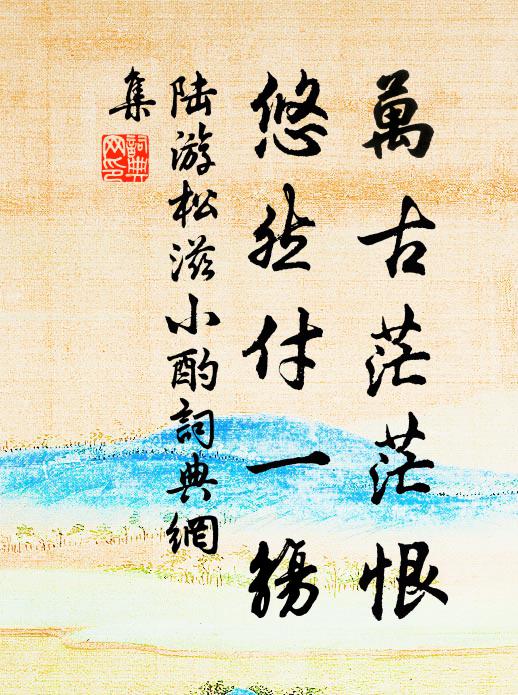 萬古茫茫恨
悠然付一觴
陸游松滋小酌詞典網
集
詞典
网印